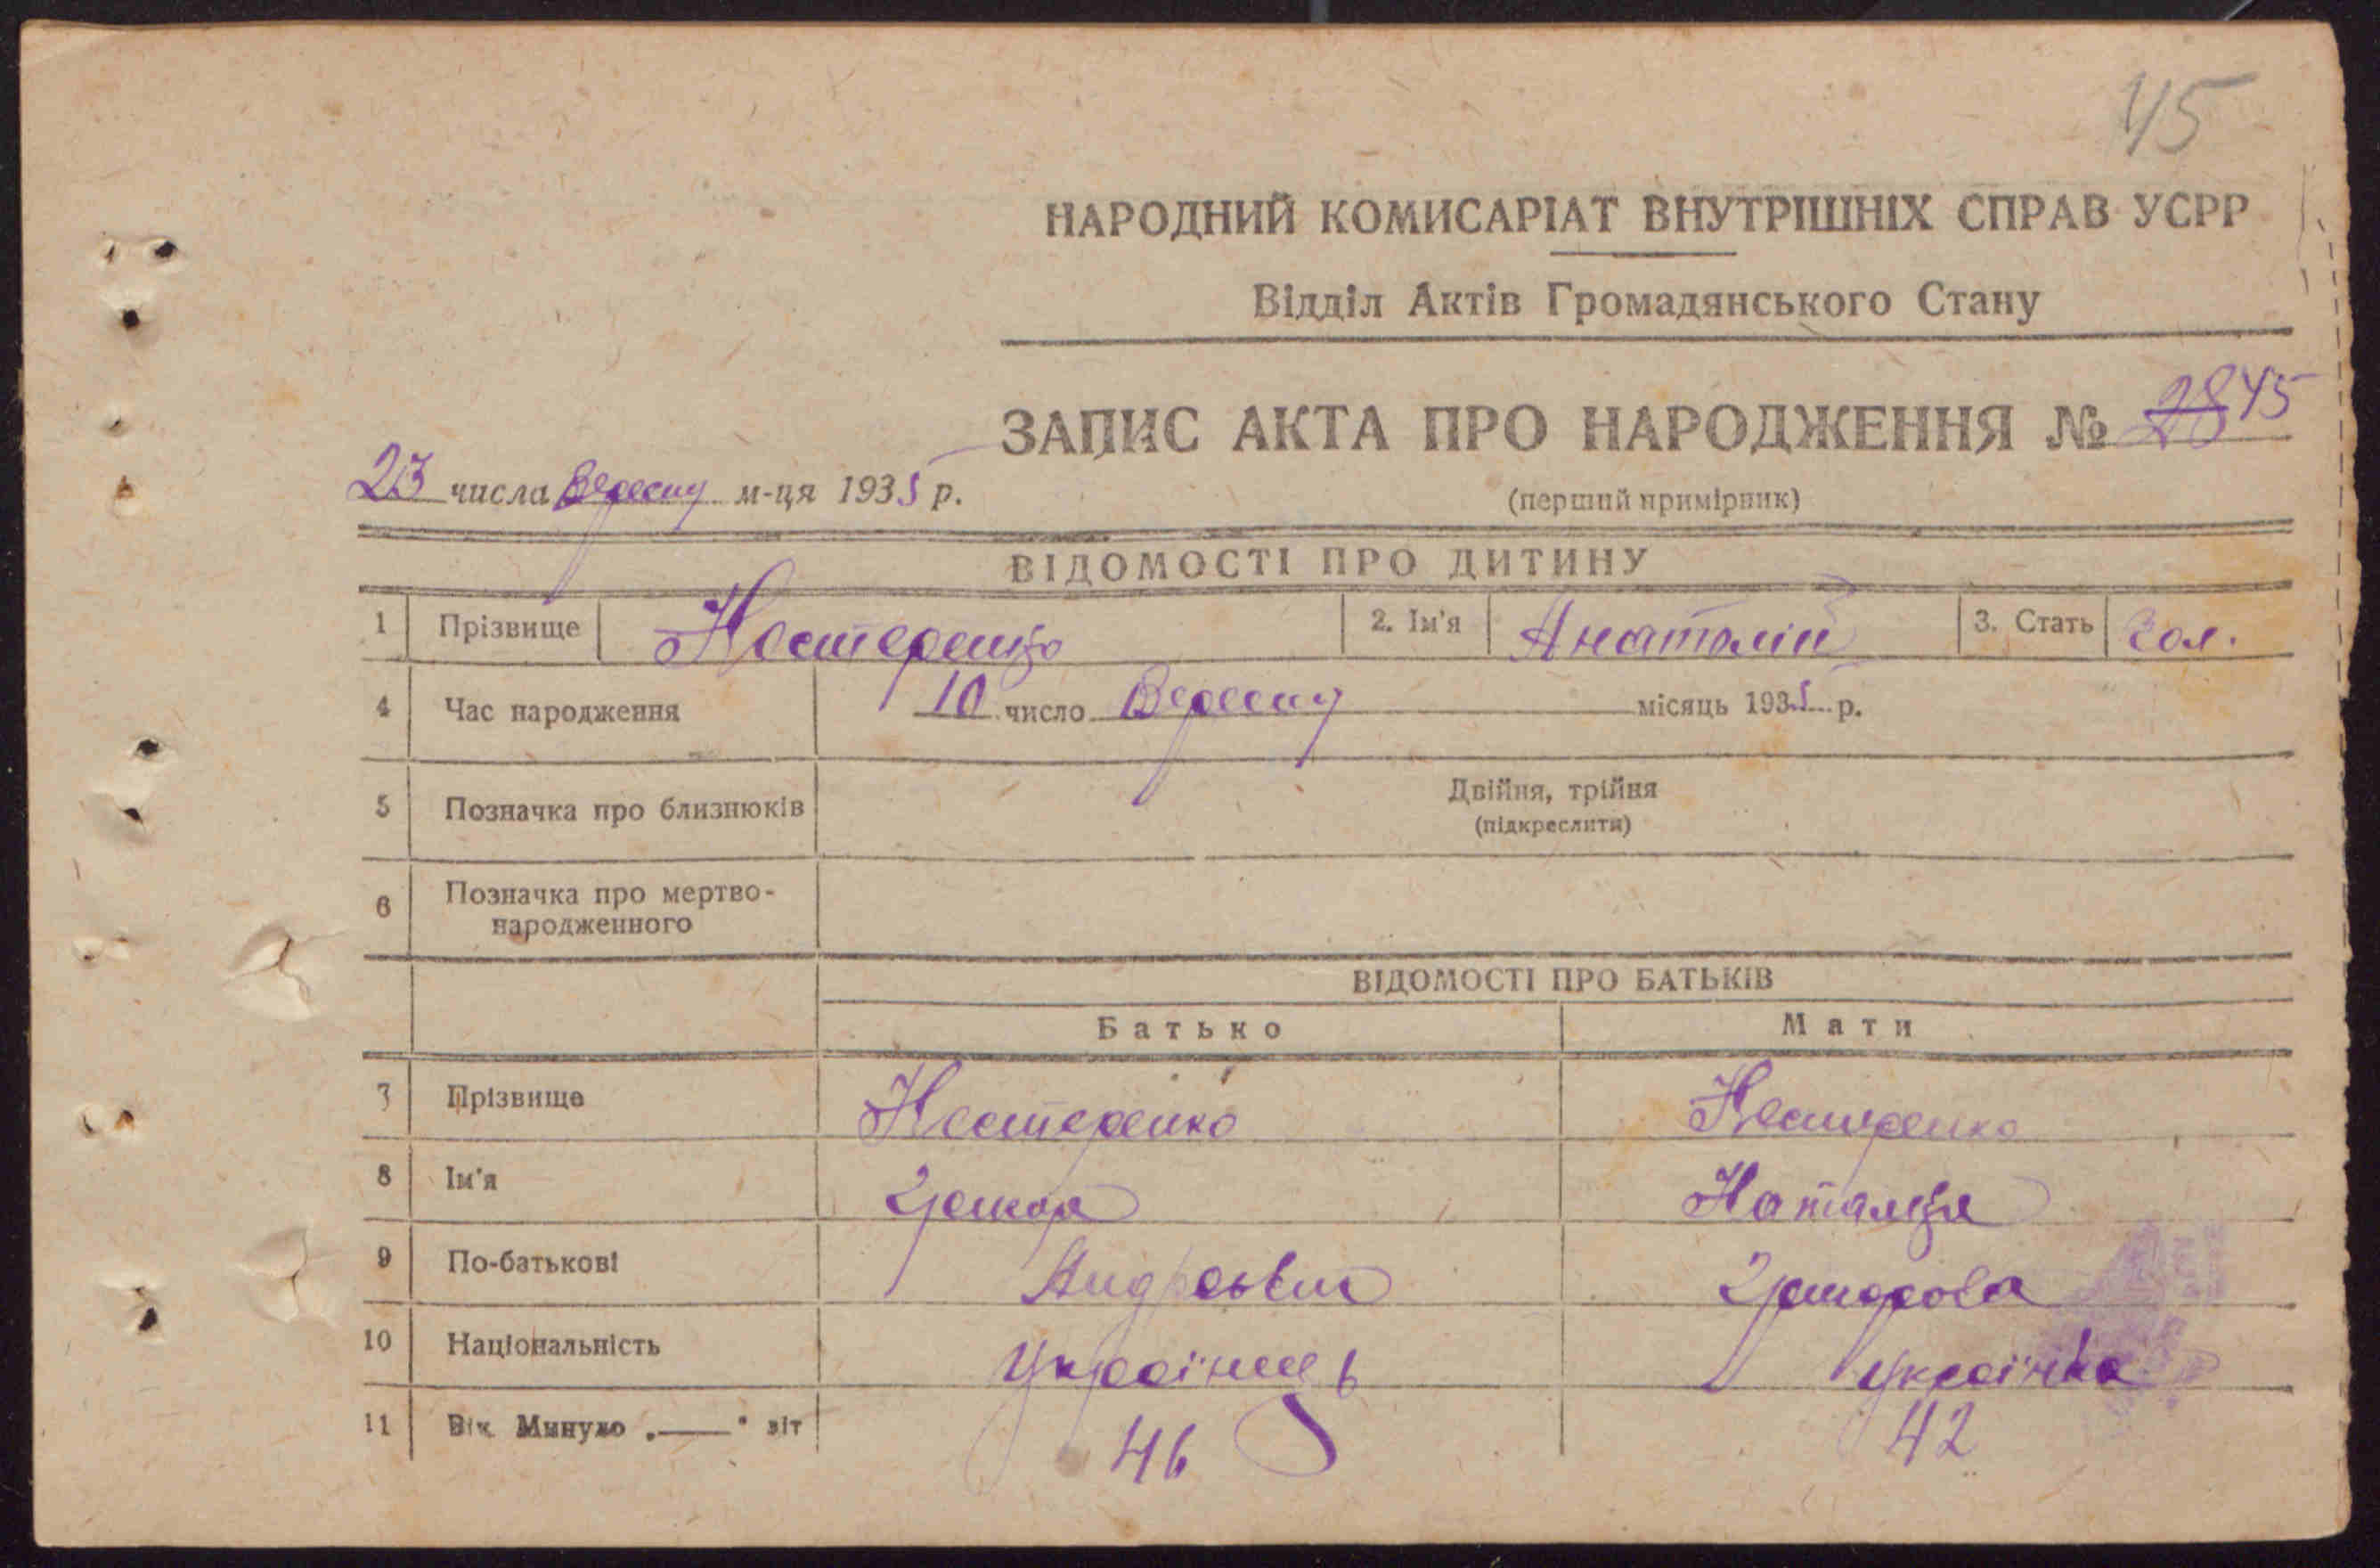 45
НАРОДНИЙ КОМИСАРІАТ ВНУТРІШНІХ СПРАВ УСРР
Відділ Актів Громадянського Стану
ЗАПИС АКТА ПРО НАРОДЖЕННЯ № 45
23 числа Вересня м-ця 1935 р.
(перший примірник)
ВІДОМОСТІ ПРО ДИТИНУ
1 Прізвище Нестеренко 2. Ім'я Анатолій 3. Стать Чол.
4 Час народження 10 число Вересня місяць 1935 р.
5 Позначка про близнюків Двійня, трійня
(підкреслити)
6 Позначка про мертво-
народженного
ВІДОМОСТІ ПРО БАТЬКІВ
Батько Мати
7 Прізвище Нестеренко Нестеренко
8 Ім'я Наталія
9 По-батькові
10 Національність Українець Українка
11 Вік. Минуло „——" літ 46 42